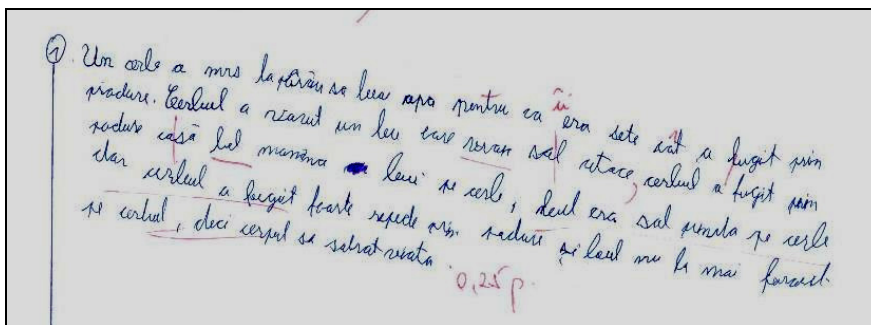 1. Un cerb a mrs la părău sa bea apa pentru ca îi era sete cât a fugit prin
pradure. Cerbul a vazut un leu care sal atace, cerbul a fugit prin
padure casă lul manina leul pe cerb, leul era sal pe cerb
dar cerbul a fugit foarte repede prin padure și leul nu la mai
pe cerbul, deci cerbul sa salvat viata.
0,25 p.